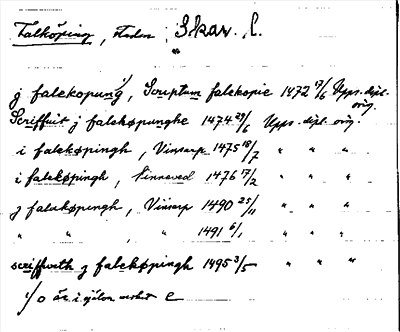 Falköping, staden Skar. l.
"
j falekopung 1), Scriptum falekopie 1472 17/6 Upps. dipl. orig.
Scriffuit j falekøpunghe 1474 29/6 Upps. dipl. orig.
i falekøpingh, Vinsarp 1475 18/7 " " "
i falekøpingh, Vinneved 1476 17/2 " " "
j falukøpingh, Vinsarp 1490 25/11 " " "
" " , " 1491 6/1 " " "
scriffweth j falekøpingh 1495 3/5 " " "
1) o är i